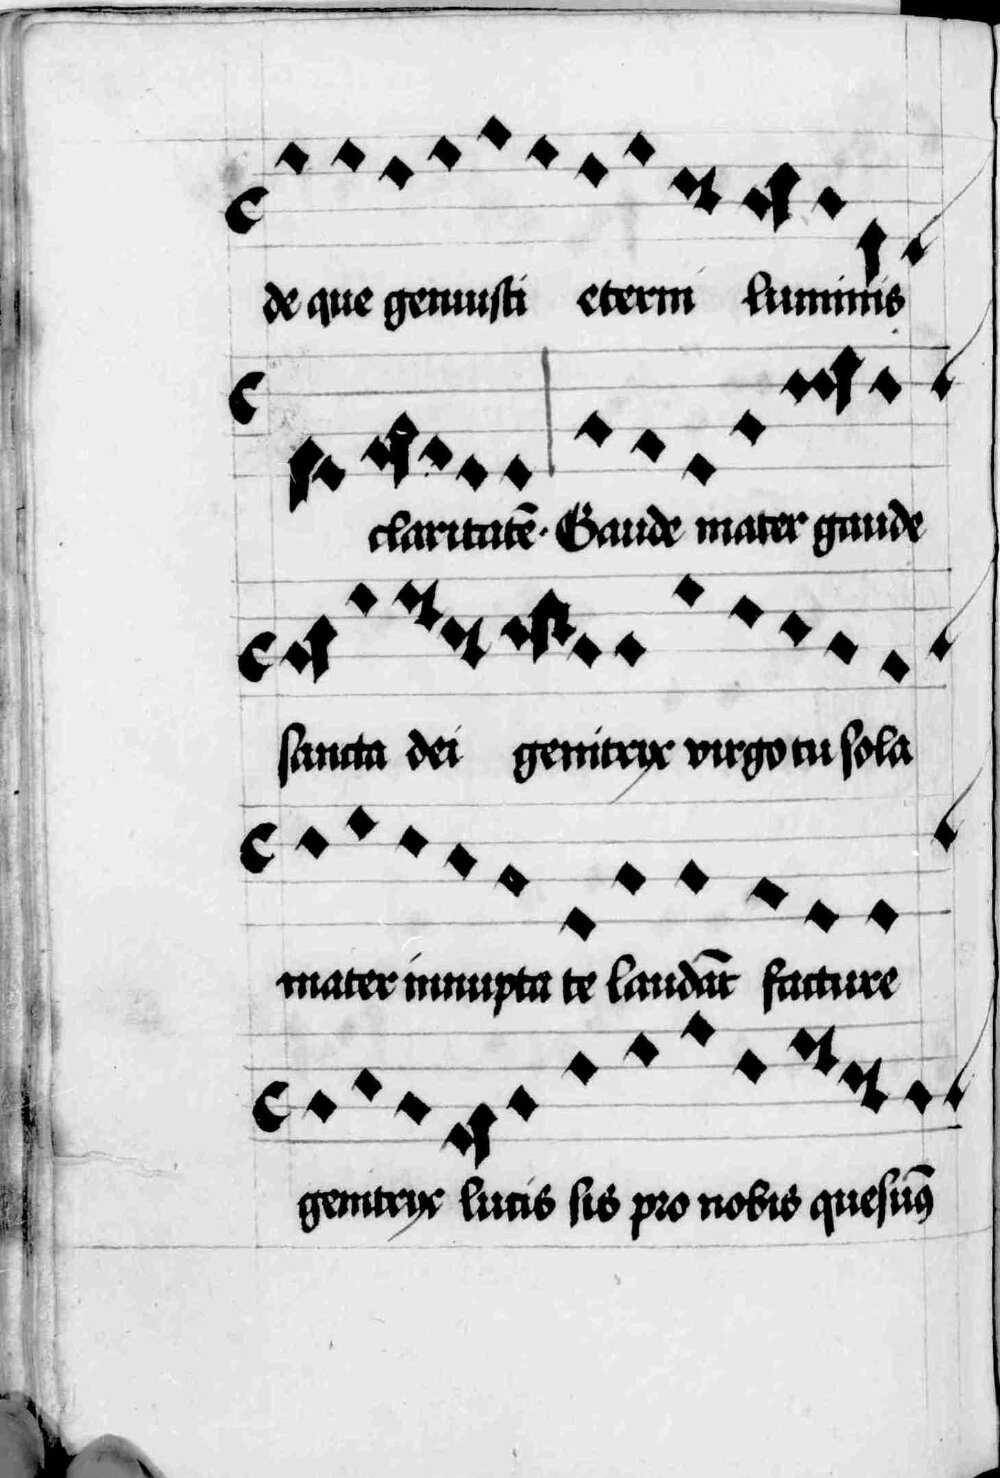 de que genuisti eterni luminis
claritatē. Gaude mater gaude
sancta dei genitryx virgo tu sola
mater innupta te laudāt facture
genitryx lucis sis pro nobis quesūꝯ